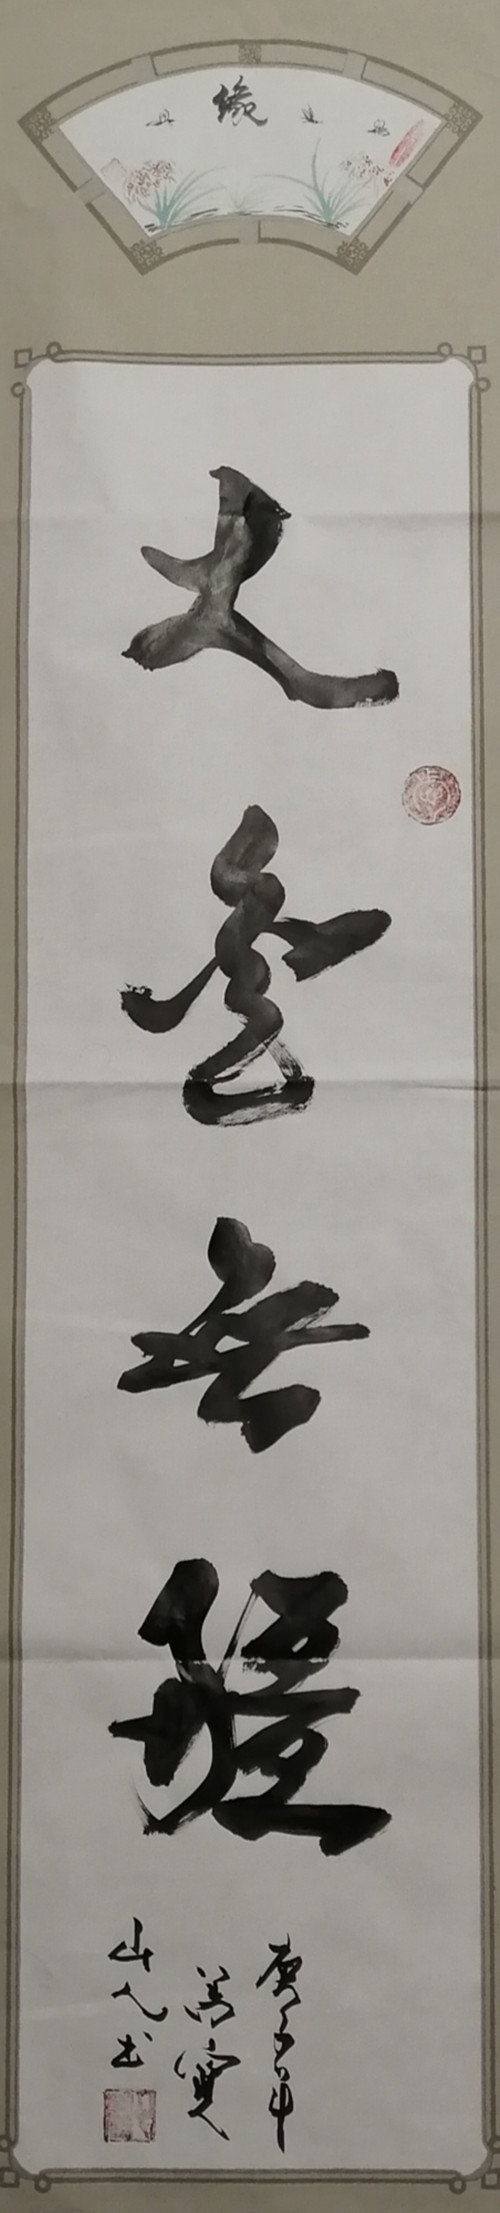 缘
大爱无疆
庚子年
寶
山人书